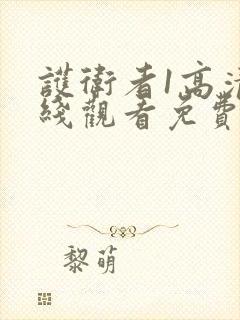 護衛者1高清
綫觀看免費
黎萌